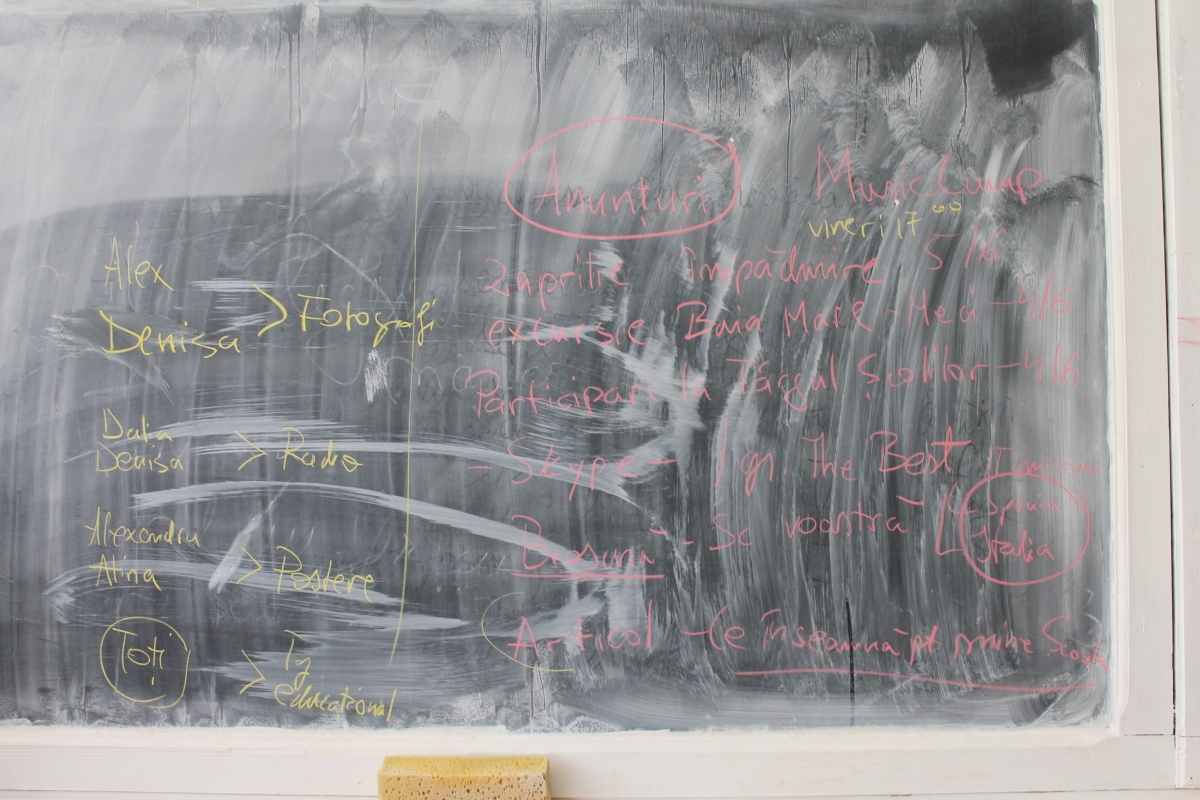 Alex
Denisa > Fotografi
Dalia
Denisa > Radio
Alexandru
Alina > Postere
Toți > Ty
educational
Anunțuri Music Camp
vineri 17 00
2 aprilie împădurire 5/6
excursie Baia Mare - 4/6
Participare la Târgul Școlilor - 4/6
- Skype - 1 gr. The Best
Broșura - Sc voastră - Spania
Italia
Articol - Ce înseamnă pt mine